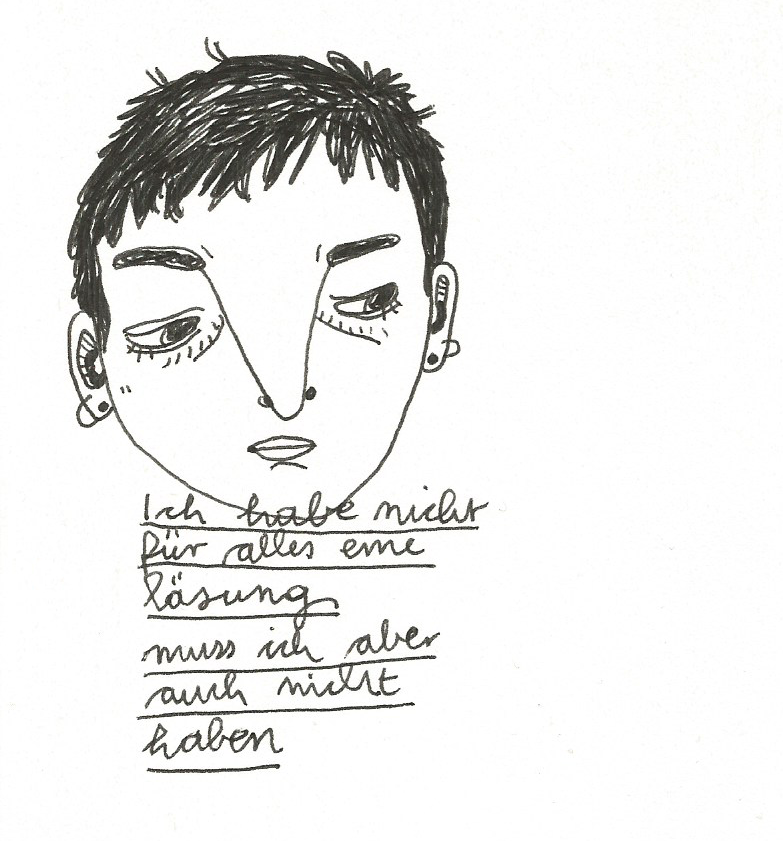 Ich habe nicht
für alles eine
lösung
muss ich aber
auch nicht
haben